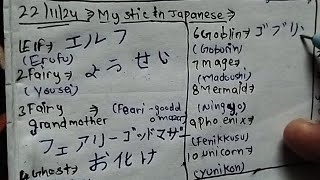 22/11/24 → Mystic in Japanese→
1Elf→ エルフ
(Erufu)
2Fairy→ ようせい
(Yousei)
3Fairy grandmother
(Feari-goddo mazā)
フェアリーゴッドマザー
4Ghost→ お化け
6Goblin→ ゴブリン
(Goburin)
7mage→
(Madoushi)
8Mermaid→
(Ningyo)
9Phoenix→
(Fenikkusu)
10unicorn→
(yunikon)